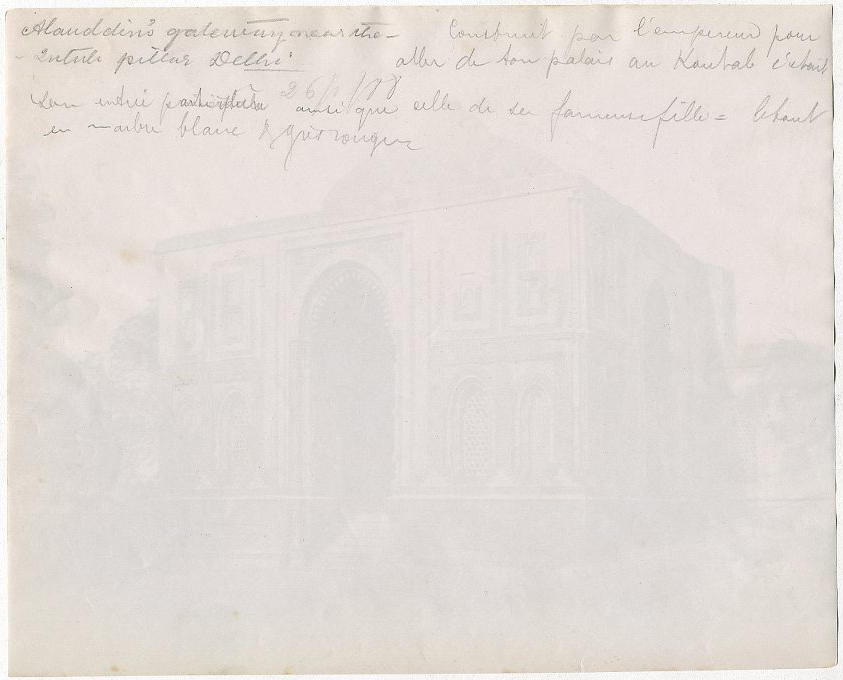 Alauddin's gateway near the - Construit par l'empereur pour
- Kutub pillar Delhi aller de son palais au Koutab c'était
26/1/88
son entrée particulière ainsi que celle de sa fameuse fille =
en marbre blanc & grès rouge